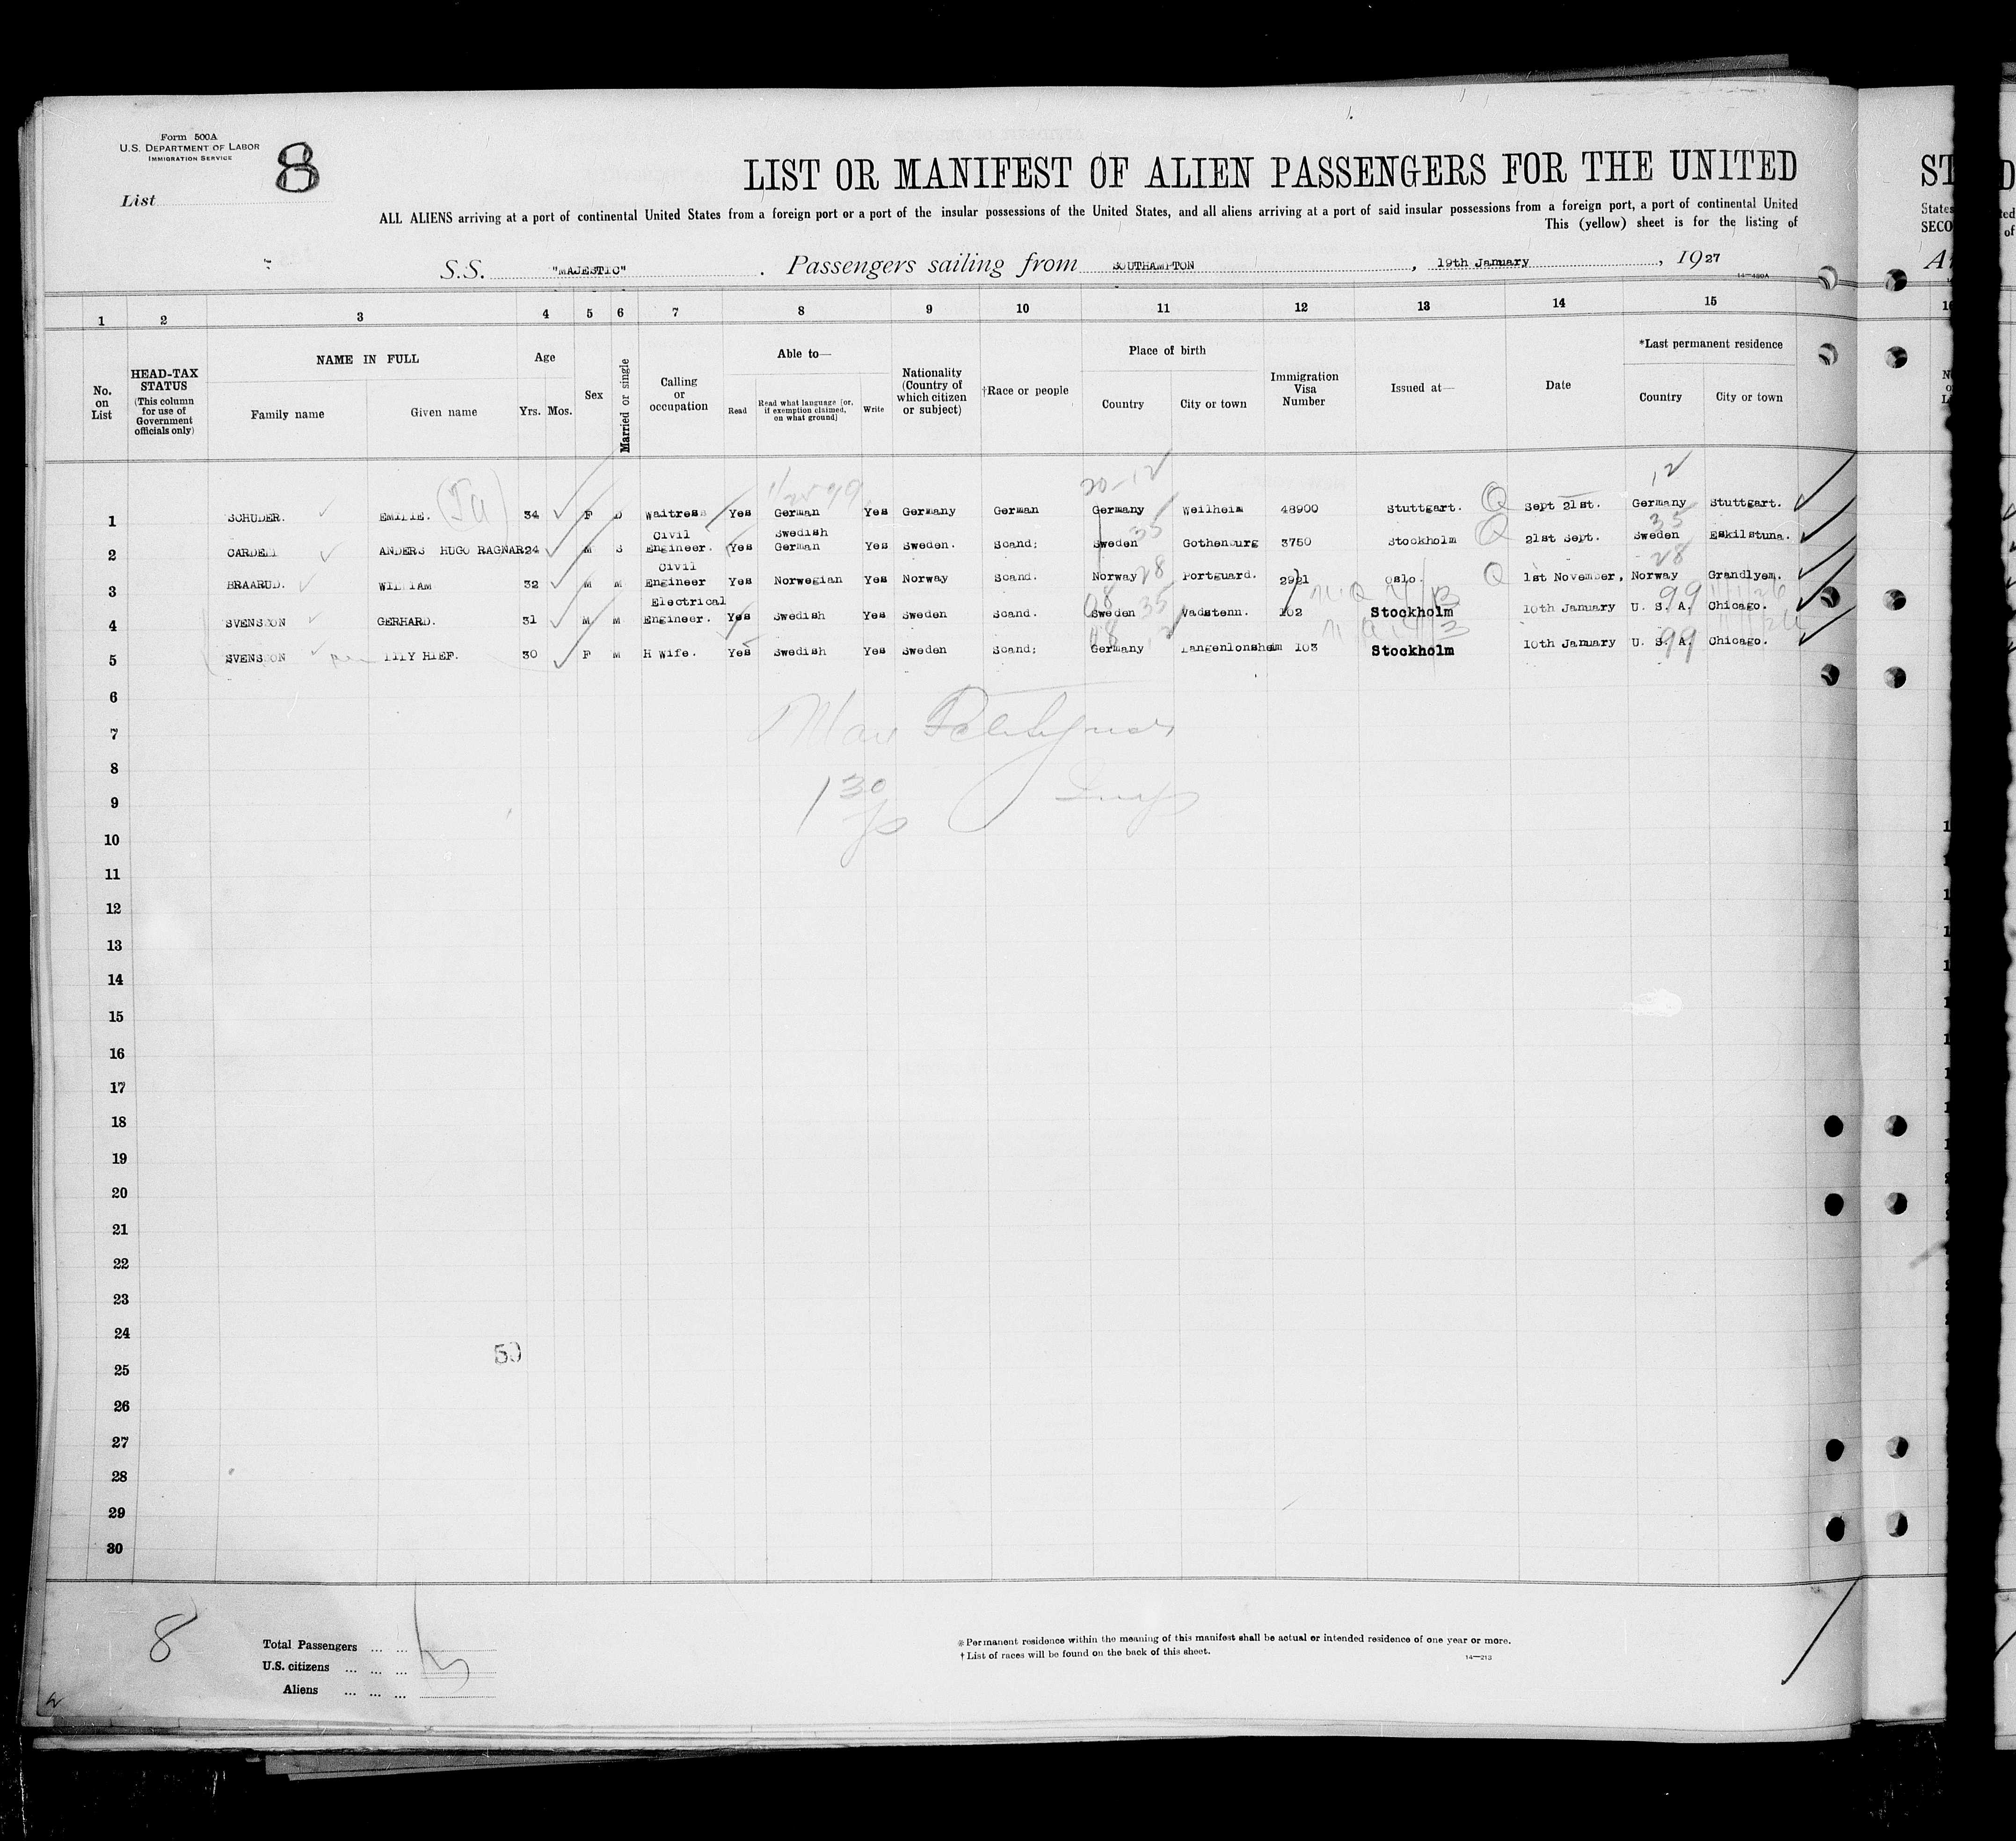 Form 500A
U.S. DEPARTMENT OF LABOR
IMMIGRATION SERVICE
8
List
LIST OR MANIFEST OF ALIEN PASSENGERS FOR THE UNITED
ALL ALIENS arriving at a port of continental United States from a foreign port or a port of the insular possessions of the United States, and all aliens arriving at a port of said insular possessions from a foreign port, a port of continental United
This (yellow) sheet is for the listing of
S.S. "MAJESTIC" . Passengers sailing from SOUTHAMPTON , 19th January , 1927
14—480A
1 2 3 4 5 6 7 8 9 10 11 12 13 14 15
No. on List
HEAD-TAX STATUS (This column for use of Government officials only)
NAME IN FULL
Family name
Given name
Age
Yrs. Mos.
Sex
Married or single
Calling or occupation
Able to—
Read
Read what language [or, if exemption claimed, on what ground]
Write
Nationality (Country of which citizen or subject)
†Race or people
Place of birth
Country
City or town
Immigration Visa Number
Issued at—
Date
*Last permanent residence
Country
City or town
20-12 12
1 SCHUDER. EMILIE. 34 F D Waitress Yes German Yes Germany German Germany Weilheim 48900 Stuttgart. Q Sept 21st. Germany Stuttgart.
Civil Swedish 35 35
2 CARDELL ANDERS HUGO RAGNAR 24 M S Engineer. Yes German Yes Sweden. Scand; Sweden Gothenburg 3750 Stockholm Q 21st Sept. Sweden Eskilstuna.
Civil 28
3 BRAARUD. WILLIAM 32 M M Engineer Yes Norwegian Yes Norway Scand. Norway 28 Portguard. 2921 Oslo. Q 1st November, Norway Grandlyem.
Electrical 99
4 SVENSSON GERHARD. 31 M M Engineer. Yes Swedish Yes Sweden Scand. Sweden 35 Vadstenn. 102 Stockholm 10th January U. S. A. Chicago.
5 SVENSSON LILY HIEF. 30 F M H Wife. Yes Swedish Yes Sweden Scand; Germany Langenlonsheim 103 Stockholm 10th January U. S. A. 99 Chicago.
6
7
8
9
10
11
12
13
14
15
16
17
18
19
20
21
22
23
24
25
26
27
28
29
30
8
Total Passengers ... ...
U.S. citizens ... ... ...
Aliens ... ... ...
5
* Permanent residence within the meaning of this manifest shall be actual or intended residence of one year or more.
† List of races will be found on the back of this sheet.
14—213